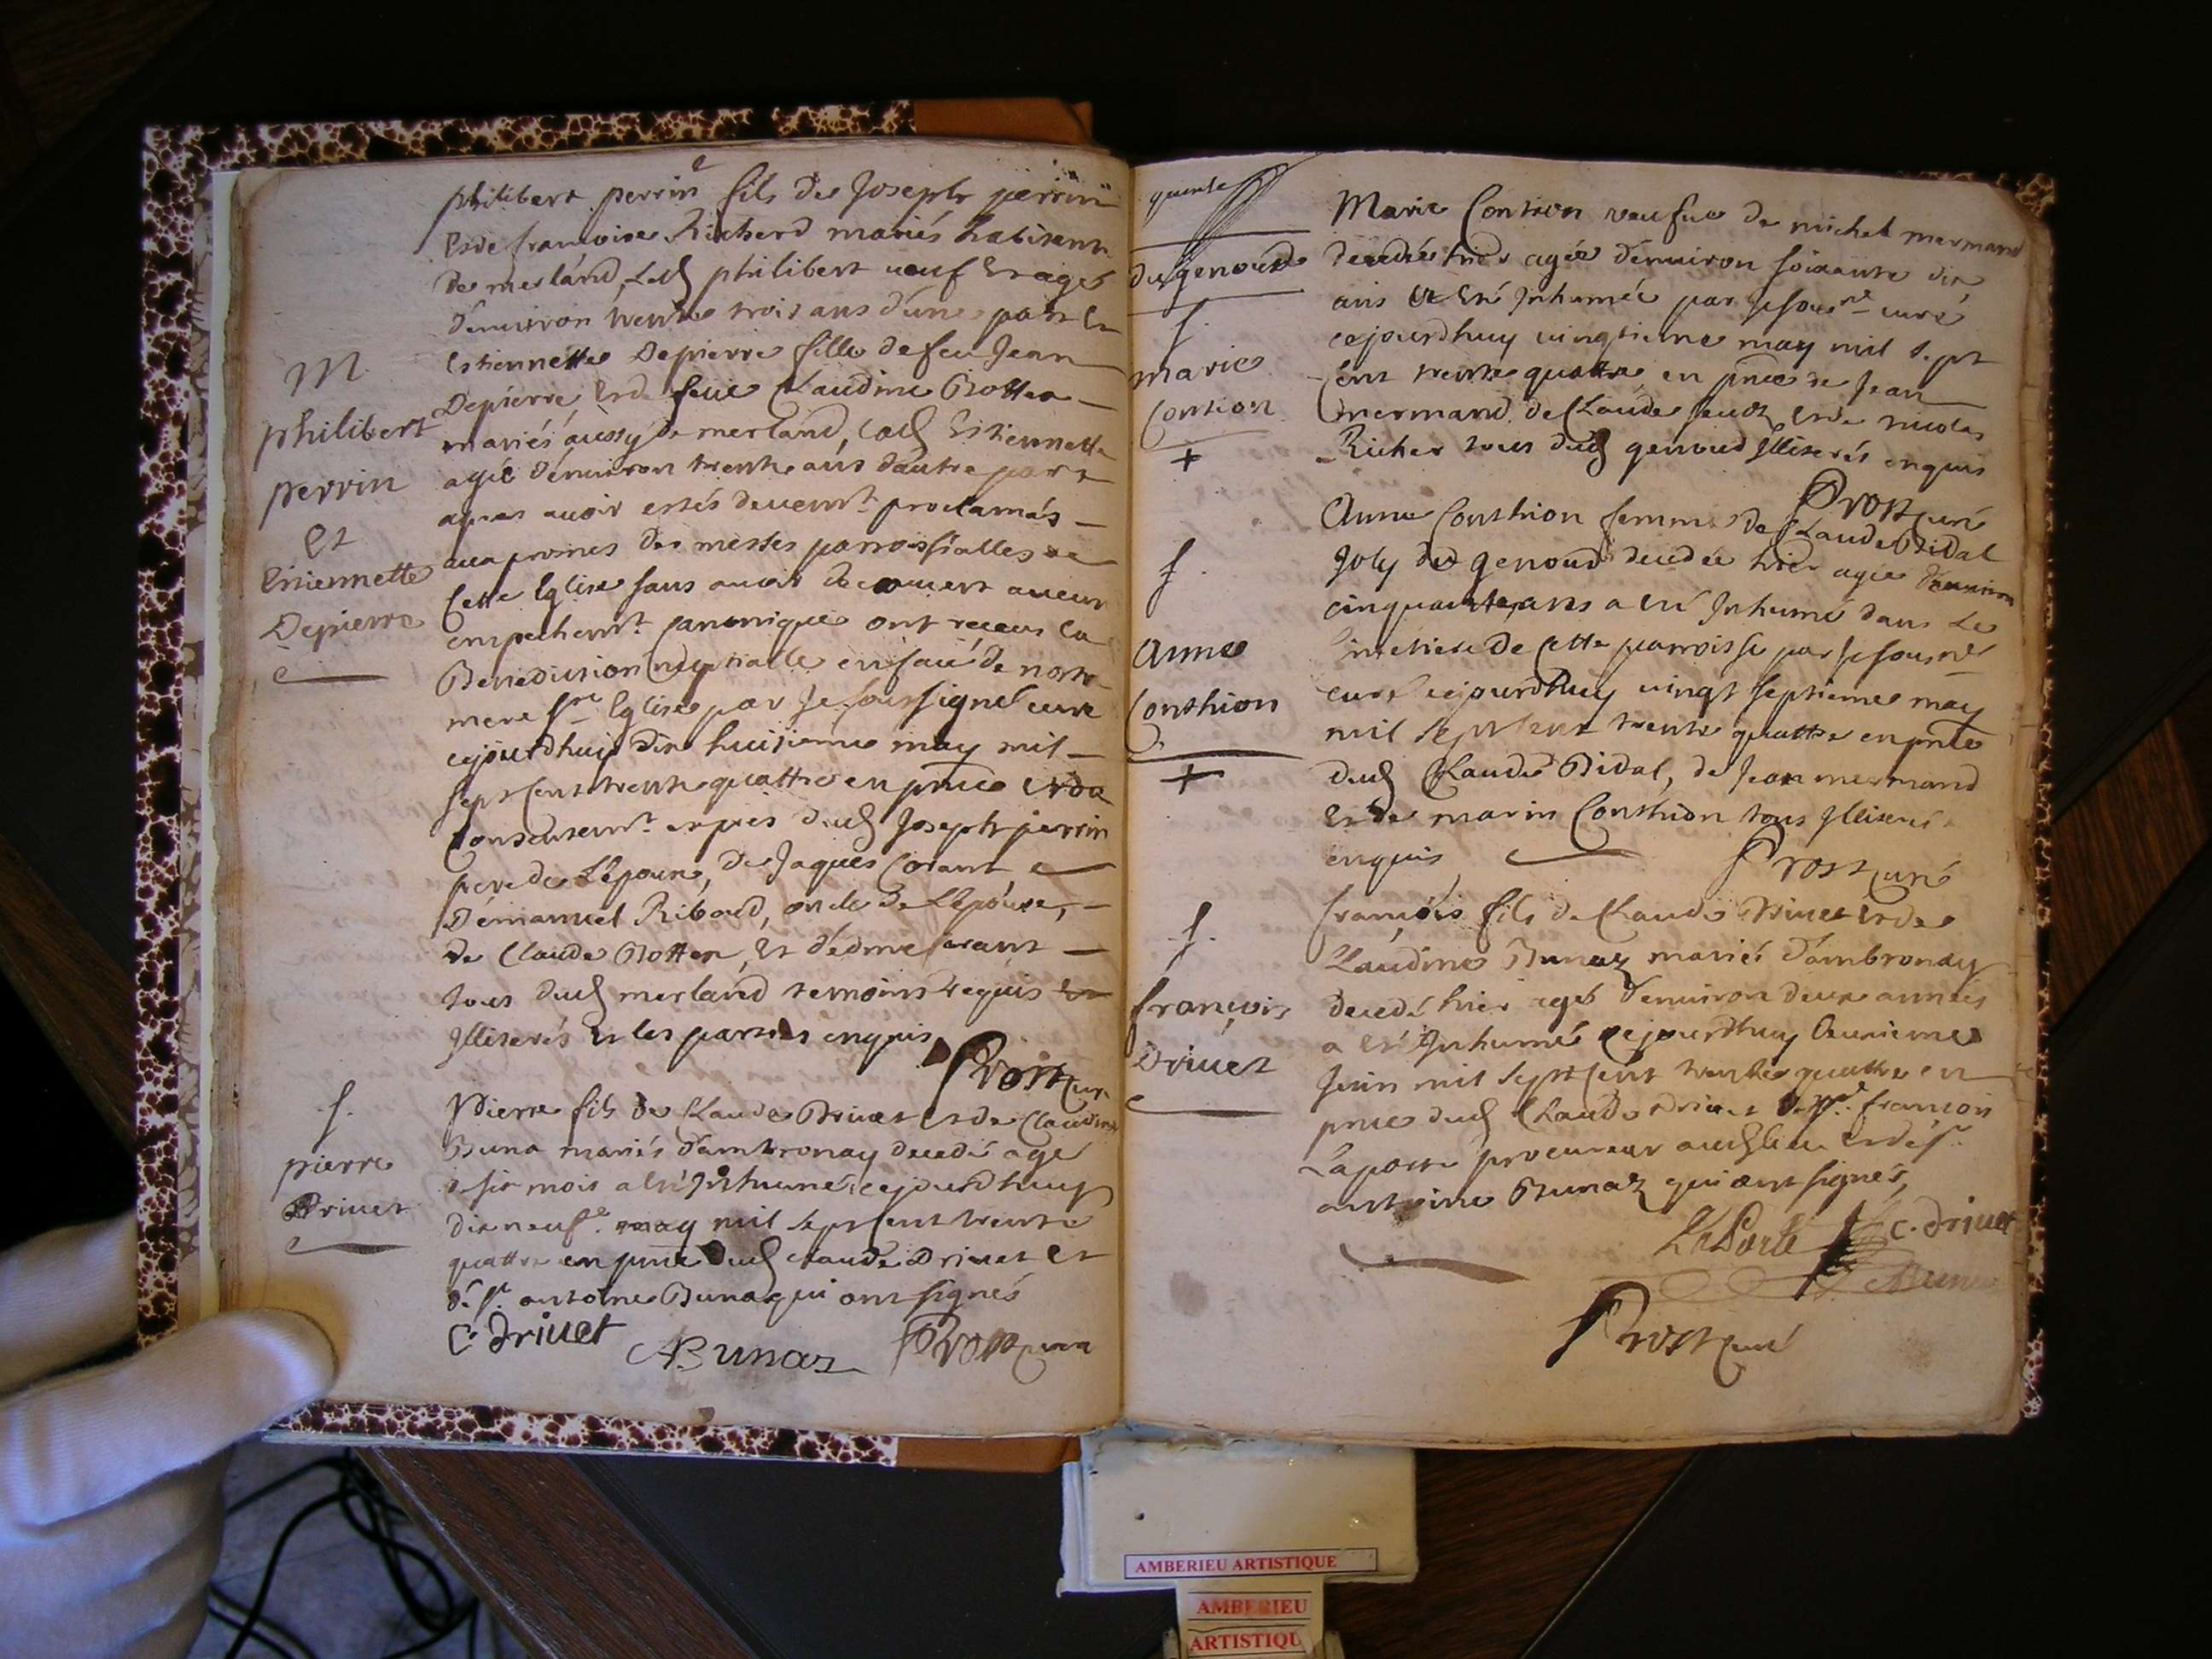 M
philibert
perrin
et
Estiennette
Depierre
philibert perrin fils de Joseph perrin
et de francoise Richerd mariés habitants
de merland, led philibert veuf et agé
d'environ trente trois ans d'une part et
Estiennette Depierre fille de feu Jean
Depierre et de feue Claudine Botter
mariés aussy de merland, lad Estiennette
agée d'environ trente ans d'autre part
apres avoir estés deuemt proclamés
aux prones des messes parroissialles de
cette Eglise sans avoir decouvert aucun
empechemt canonique ont receus la
Benediction nuptialle en face de nostre
mere ste Eglise par Je soussigné curé
cejourdhuy dix huitieme may mil
sept cent trente quattre en pnce et du
consentemt expres dud Joseph perrin
pere de L'epoux, de Jaques Corant
D'emanuel Riboud, oncle de L'epouse,
de Claude Botter, et d'edme corant
tous dud merland temoins requis et
Illiterés et les parties enquis
Prost curé
f.
pierre
Drivet
Pierre fils de Claude Drivet et de Claudine
Buna mariés d'ambronay decedé agé
de six mois a eté Inhumé cejourdhuy
dix neufe may mil sept cent trente
quattre en pnce dud claude Drivet et
de sr antoine Bunaz qui ont signés
C. drivet ABunaz Prost curé
trente
du genoud
f.
marie
Contion
+
Marie Contion veufue de michel mermand
decedée hier agée d'environ soixante dix
ans at eté Inhumée par Je sousné curé
cejourdhuy vingtieme may mil sept
cent trente quattre en pnce de Jean
mermand de Claude et de nicolas
Richer tous dud genoud Illiterés enquis
Prost curé
f.
anne
Conthion
+
Anne Conthion femme de Claude Bidal
Joly du genoud decedée hier agée d'environ
cinquante ans a eté Inhumé dans le
cimetiere de cette parroisse par Je sousné
curé cejourdhuy vingt septieme may
mil sept cent trente quattre en pnce
dud Claude Bidal, de Jean mermand
et de marin Conthion tous Illiterés
enquis
Prost curé
f.
françois
Drivet
françois fils de Claude Drivet et de
Claudine Bunaz mariés d'ambronay
decedé hier agé d'environ deux années
a eté Inhumé cejourdhuy
Juin mil sept cent trente quattre en
pnce dud Claude drivet de françois
Laporte procureur aud lieu et de sr
antoine Bunaz qui ont signés,
LaPorte C. drivet
ABunaz
Prost curé
AMBERIEU ARTISTIQUE
AMBERIEU
ARTISTIQU